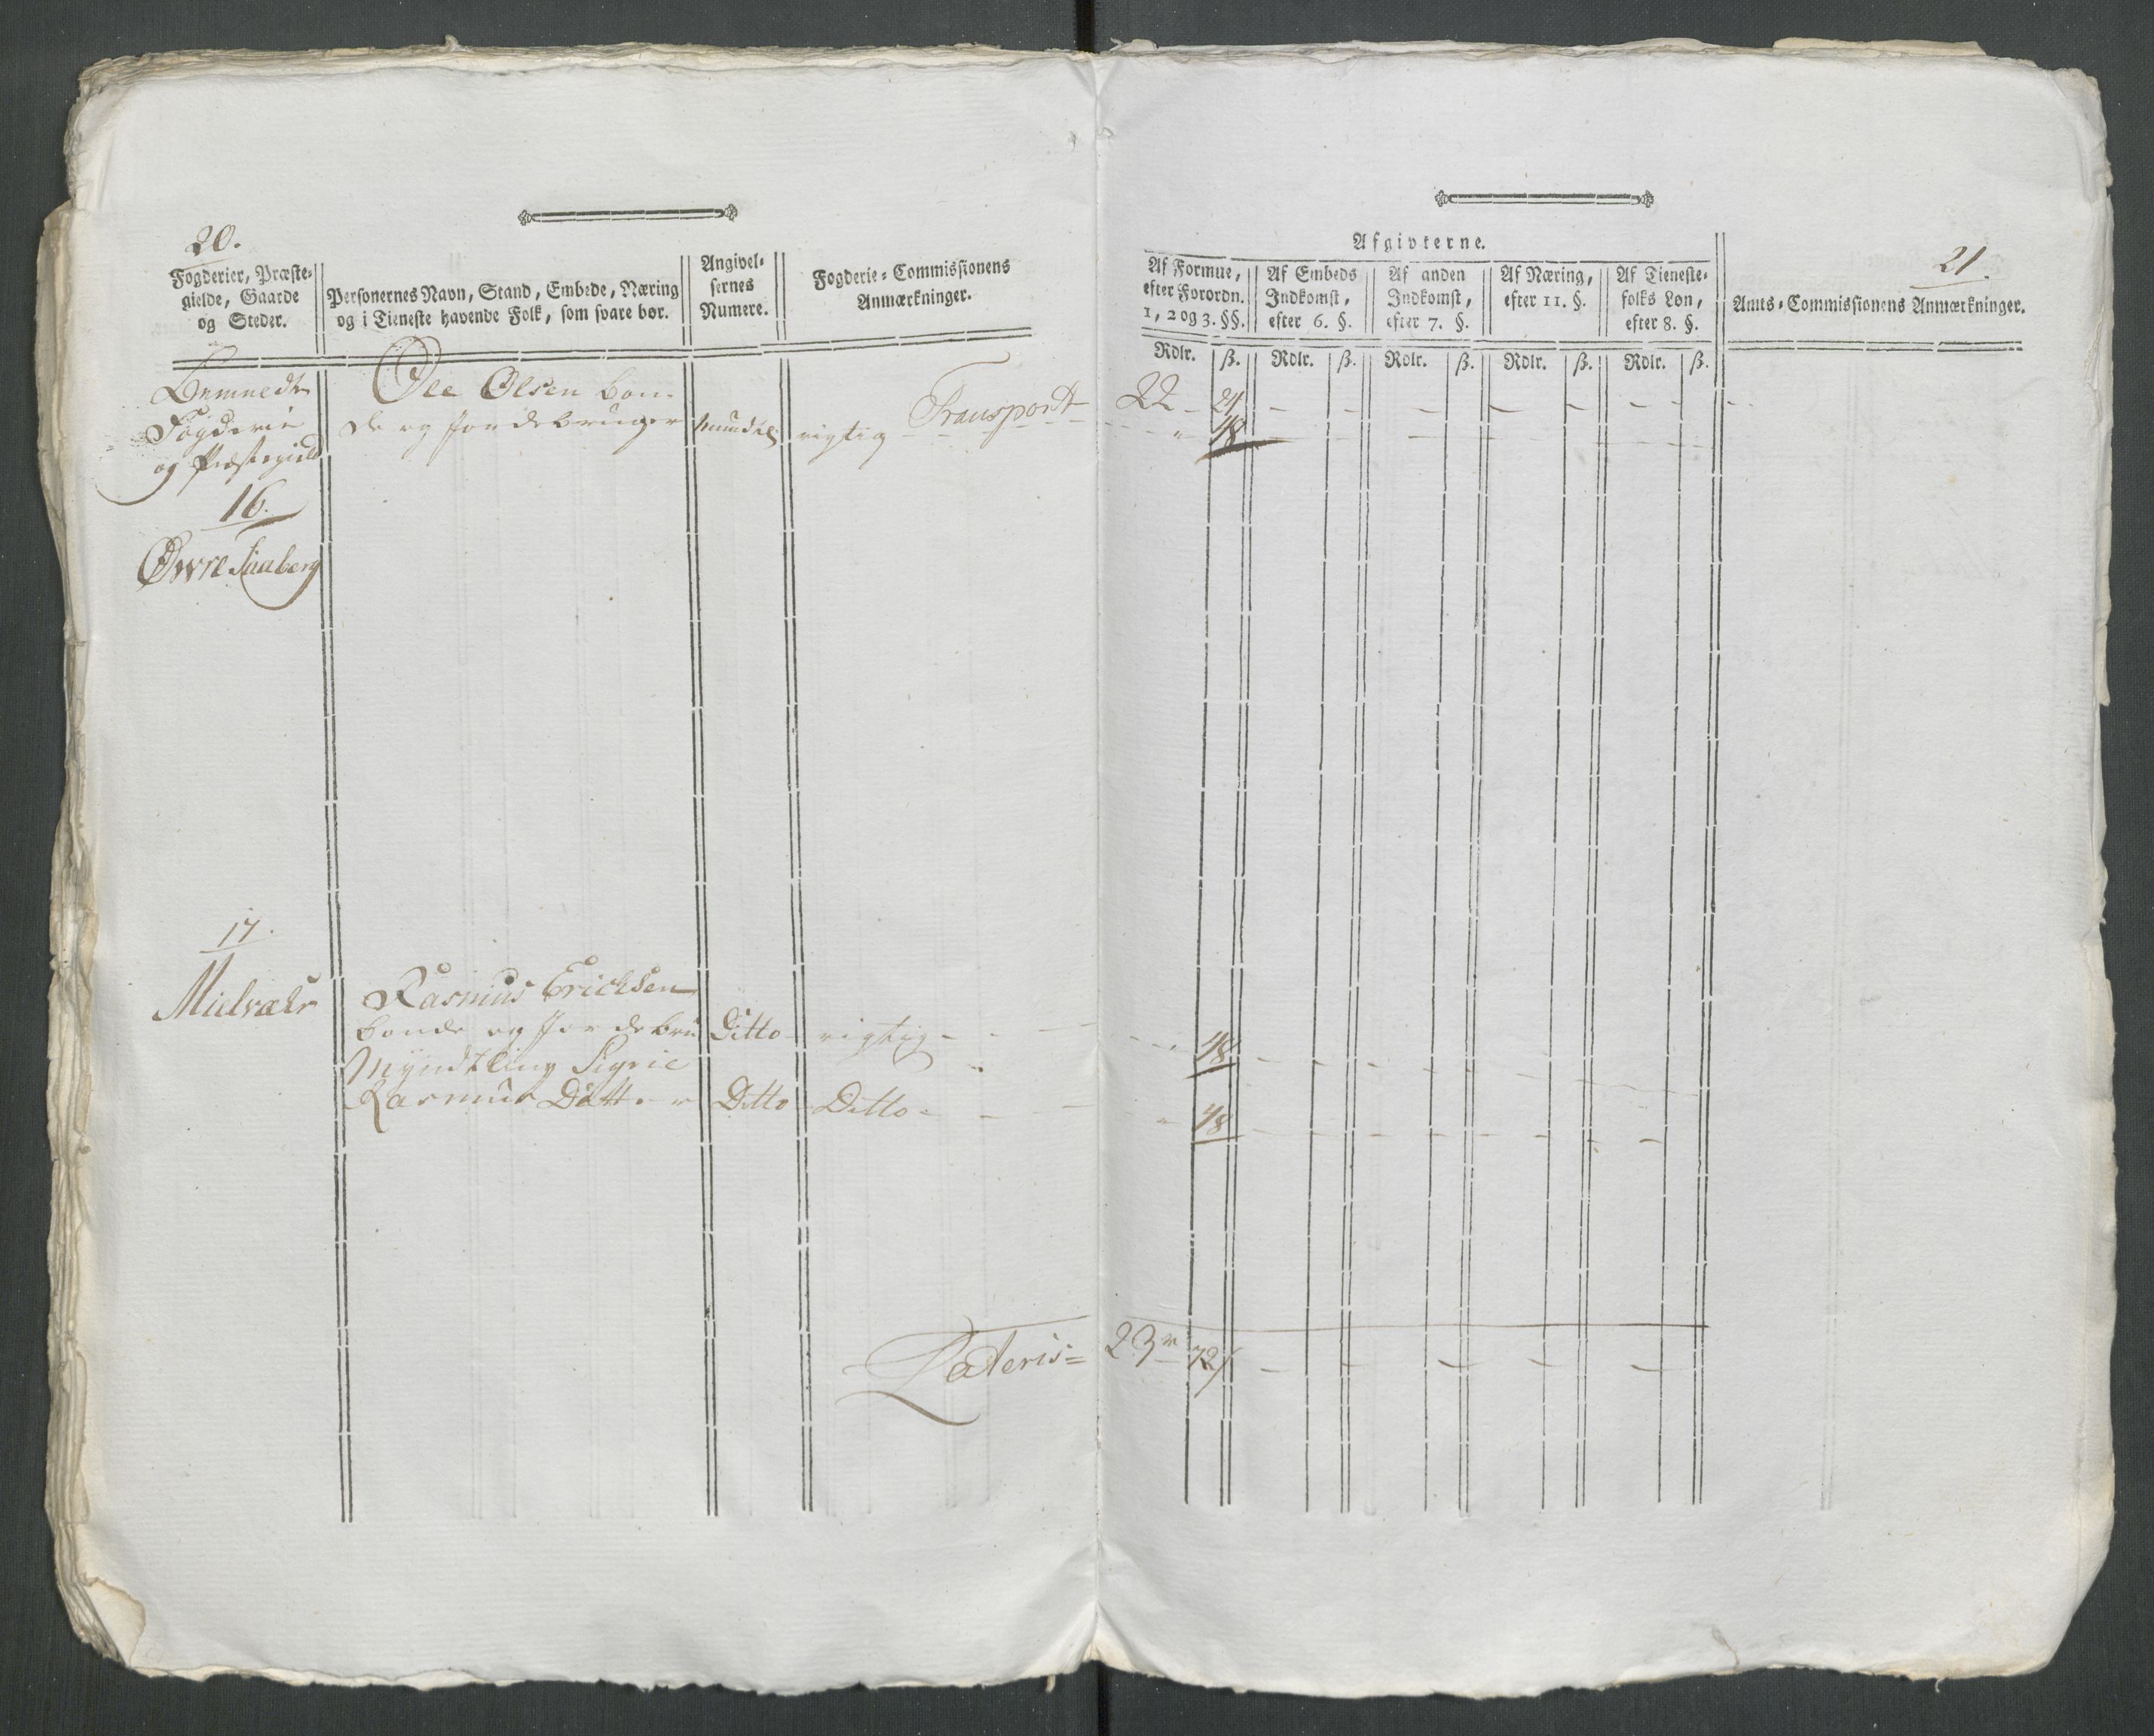 20.
Fogderier, Præste-
gielde, Gaarde
og Steder.
Personernes Navn, Stand, Embede, Næring
og i Tieneste havende Folk, som svare bør.
Angivel-
sernes
Numere.
Fogderie-Commissionens
Anmærkninger.
Bemeldte
Fogderie
og Præstegield
16.
Øvre
Ole Olsen bon-
de og Jordebruger
mundtlig
rigtig
Transport
17.
Rasmus Ericksen
bonde og Jordebru
Ditto
rigtig
Myndtling Sigrie
Rasmus Datter
Ditto
Ditto
Lateris
Afgivterne.
21.
Af Formue,
efter Forordn.
1, 2 og 3. §§.
Af Embeds
Indkomst,
efter 6. §.
Af anden
Indkomst,
efter 7. §.
Af Næring,
efter 11. §.
Af Tieneste-
folks Løn,
efter 8. §.
Amts-Commissionens Anmærkninger.
Rdlr. ß. Rdlr. ß. Rdlr. ß. Rdlr. ß. Rdlr. ß.
22 - 24 - - - - - - - -
" 48 - - - -
" 48 - - - -
" 48 - - - -
23 72 - - - - -